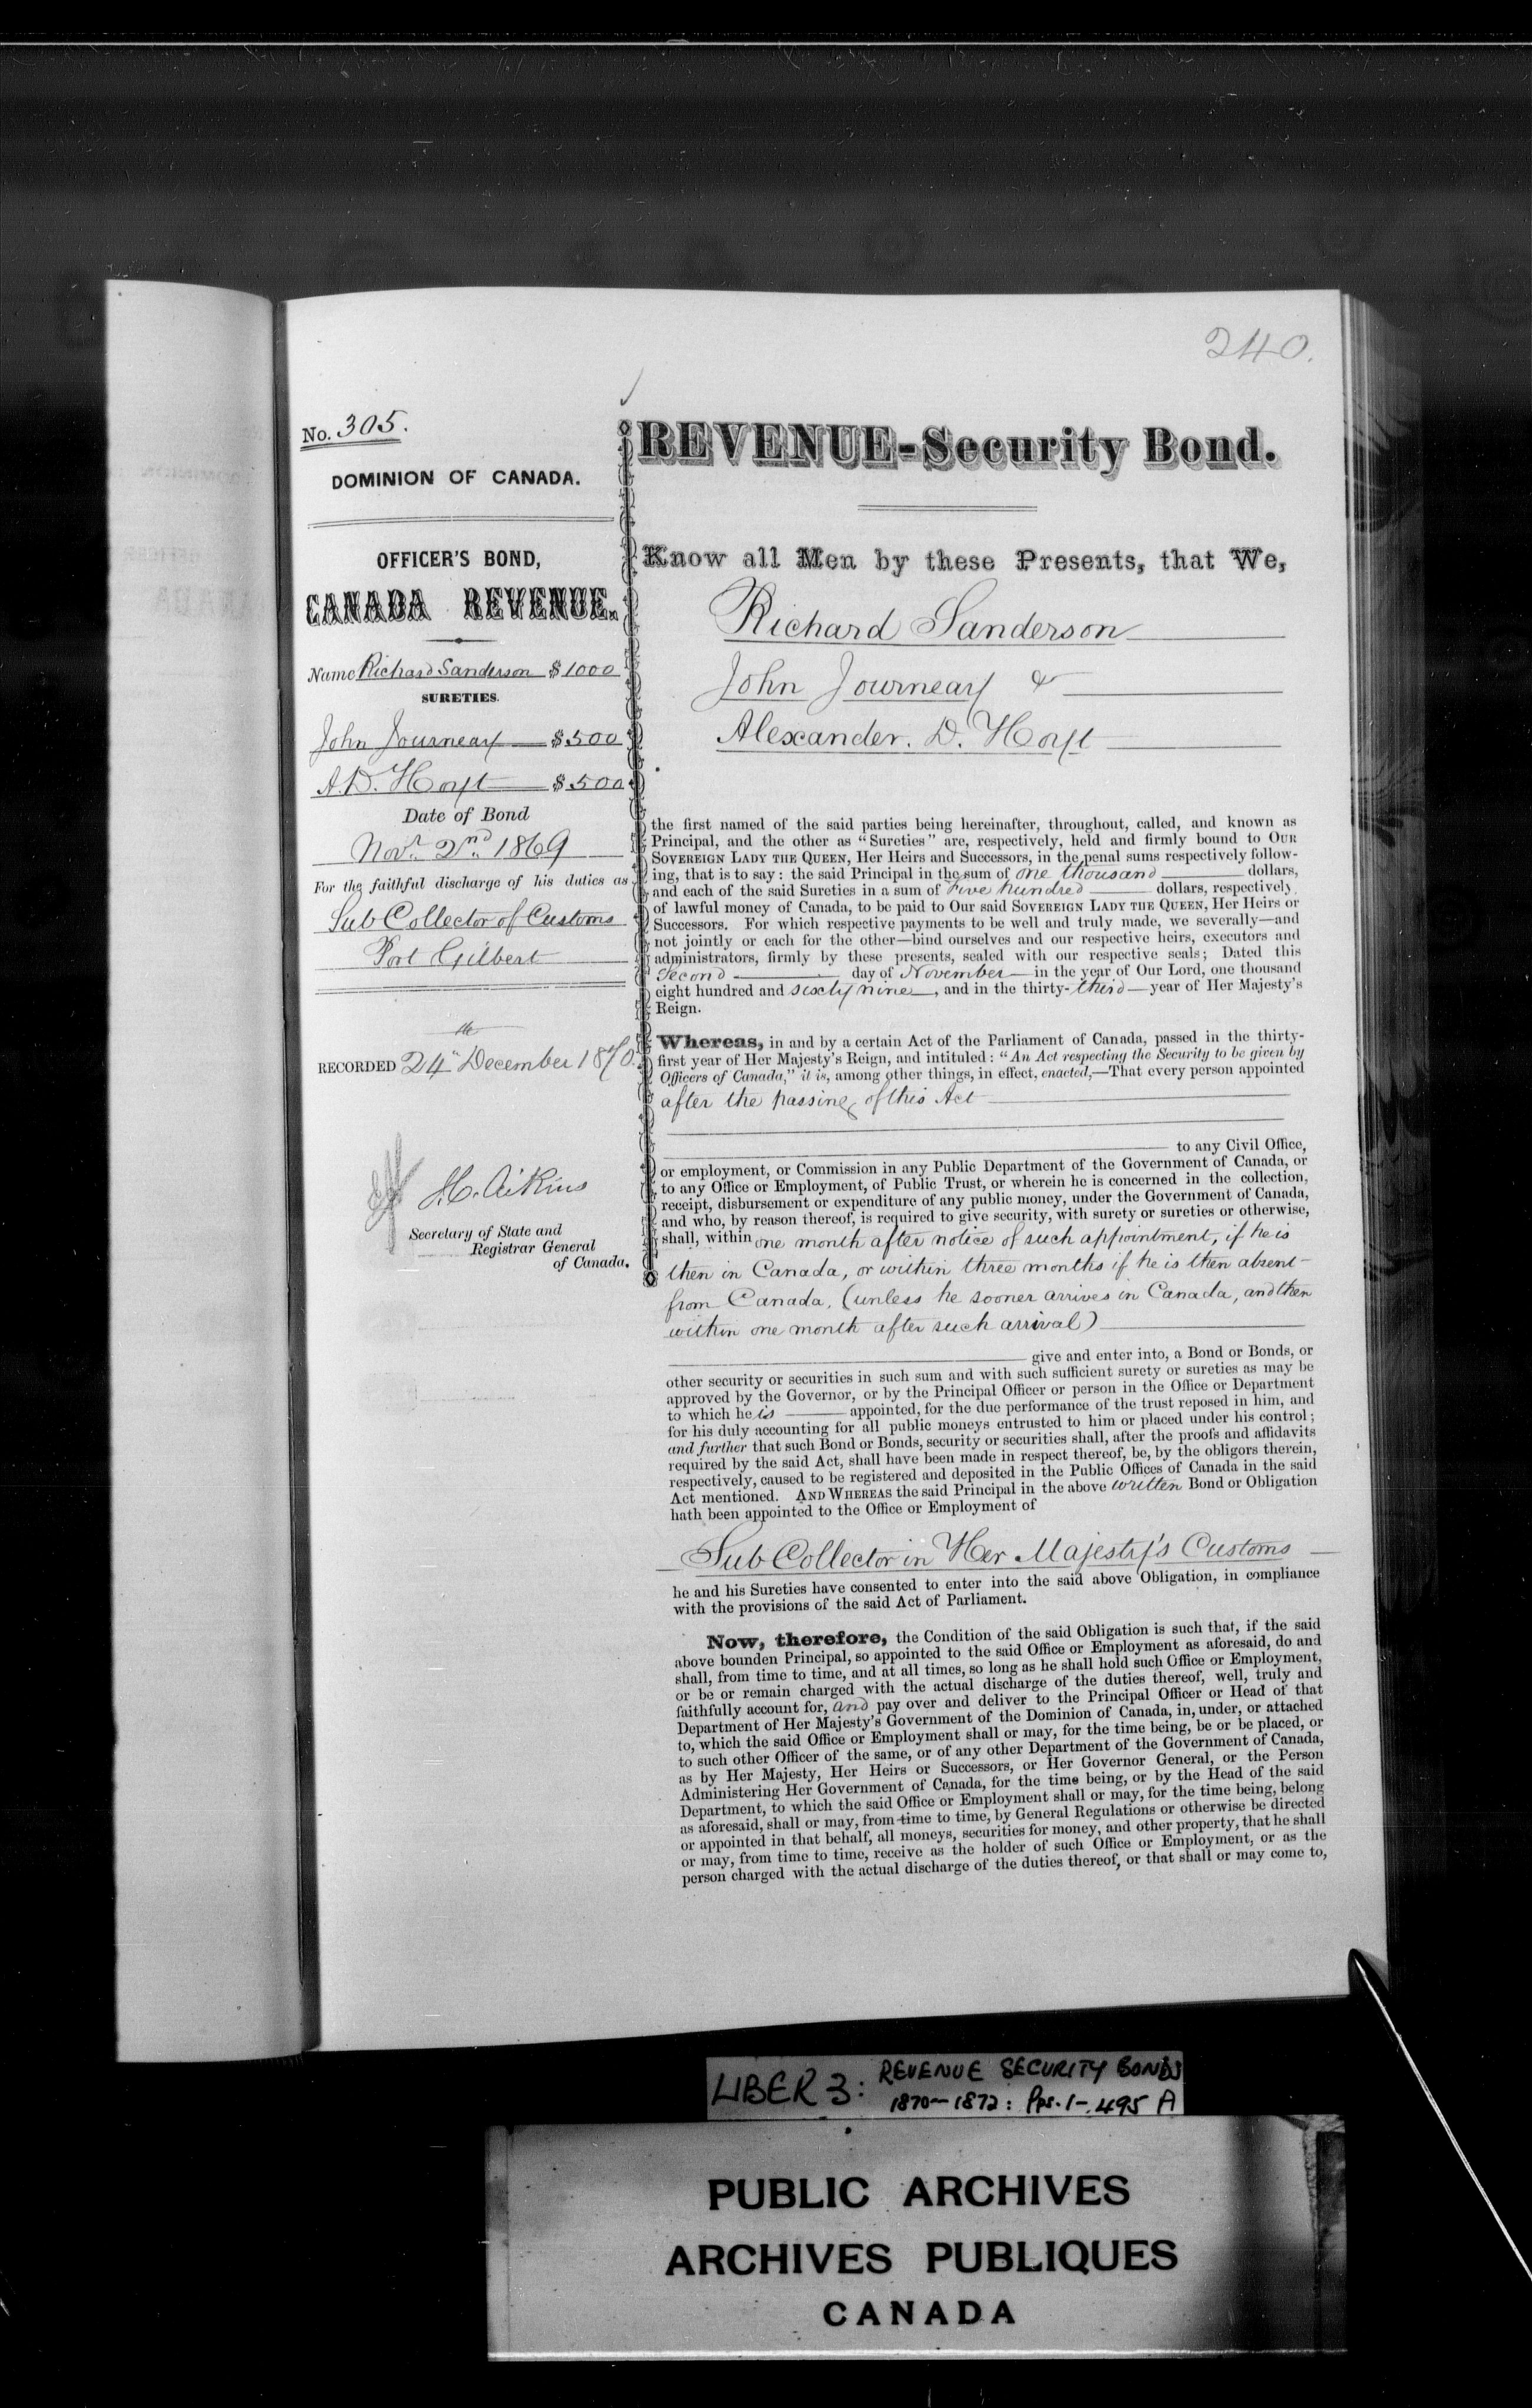 240.
No. 305.
DOMINION OF CANADA.
OFFICER'S BOND,
CANADA REVENUE.
Name Richard Sanderson $1000
SURETIES.
John Journeay $500
A. D. Hoyt $500
Date of Bond
Novr. 2nd. 1869
For the faithful discharge of his duties as
Sub Collector of Customs
Port Gilbert
RECORDED 24th December 1870.
J. C. Aikins
Secretary of State and
Registrar General
of Canada.
REVENUE-Security Bond.
Know all Men by these Presents, that We,
Richard Sanderson
John Journeay &
Alexander. D. Hoyt
the first named of the said parties being hereinafter, throughout, called, and known as
Principal, and the other as "Sureties" are, respectively, held and firmly bound to OUR
SOVEREIGN LADY THE QUEEN, Her Heirs and Successors, in the penal sums respectively follow-
ing, that is to say: the said Principal in the sum of one thousand dollars,
and each of the said Sureties in a sum of Five hundred dollars, respectively,
of lawful money of Canada, to be paid to Our said SOVEREIGN LADY THE QUEEN, Her Heirs or
Successors. For which respective payments to be well and truly made, we severally—and
not jointly or each for the other—bind ourselves and our respective heirs, executors and
administrators, firmly by these presents, sealed with our respective seals; Dated this
Second day of November in the year of Our Lord, one thousand
eight hundred and sixty nine, and in the thirty-third year of Her Majesty's
Reign.
Whereas, in and by a certain Act of the Parliament of Canada, passed in the thirty-
first year of Her Majesty's Reign, and intituled: "An Act respecting the Security to be given by
Officers of Canada," it is, among other things, in effect, enacted,—That every person appointed
after the passing of this Act
to any Civil Office,
or employment, or Commission in any Public Department of the Government of Canada, or
to any Office or Employment, of Public Trust, or wherein he is concerned in the collection,
receipt, disbursement or expenditure of any public money, under the Government of Canada,
and who, by reason thereof, is required to give security, with surety or sureties or otherwise,
shall, within one month after notice of such appointment, if he is
then in Canada, or within three months if he is then absent
from Canada, (unless he sooner arrives in Canada, and then
within one month after such arrival)
give and enter into, a Bond or Bonds, or
other security or securities in such sum and with such sufficient surety or sureties as may be
approved by the Governor, or by the Principal Officer or person in the Office or Department
to which he is appointed, for the due performance of the trust reposed in him, and
for his duly accounting for all public moneys entrusted to him or placed under his control;
and further that such Bond or Bonds, security or securities shall, after the proofs and affidavits
required by the said Act, shall have been made in respect thereof, be, by the obligors therein,
respectively, caused to be registered and deposited in the Public Offices of Canada in the said
Act mentioned. AND WHEREAS the said Principal in the above written Bond or Obligation
hath been appointed to the Office or Employment of
Sub Collector in Her Majesty's Customs
he and his Sureties have consented to enter into the said above Obligation, in compliance
with the provisions of the said Act of Parliament.
Now, therefore, the Condition of the said Obligation is such that, if the said
above bounden Principal, so appointed to the said Office or Employment as aforesaid, do and
shall, from time to time, and at all times, so long as he shall hold such Office or Employment,
or be or remain charged with the actual discharge of the duties thereof, well, truly and
faithfully account for, and pay over and deliver to the Principal Officer or Head of that
Department of Her Majesty's Government of the Dominion of Canada, in, under, or attached
to, which the said Office or Employment shall or may, for the time being, be or be placed, or
to such other Officer of the same, or of any other Department of the Government of Canada,
as by Her Majesty, Her Heirs or Successors, or Her Governor General, or the Person
Administering Her Government of Canada, for the time being, or by the Head of the said
Department, to which the said Office or Employment shall or may, for the time being, belong
as aforesaid, shall or may, from time to time, by General Regulations or otherwise be directed
or appointed in that behalf, all moneys, securities for money, and other property, that he shall
or may, from time to time, receive as the holder of such Office or Employment, or as the
person charged with the actual discharge of the duties thereof, or that shall or may come to,
LIBER 3: REVENUE SECURITY BONDS
1870-1872: Pps. 1-495 A
PUBLIC ARCHIVES
ARCHIVES PUBLIQUES
CANADA